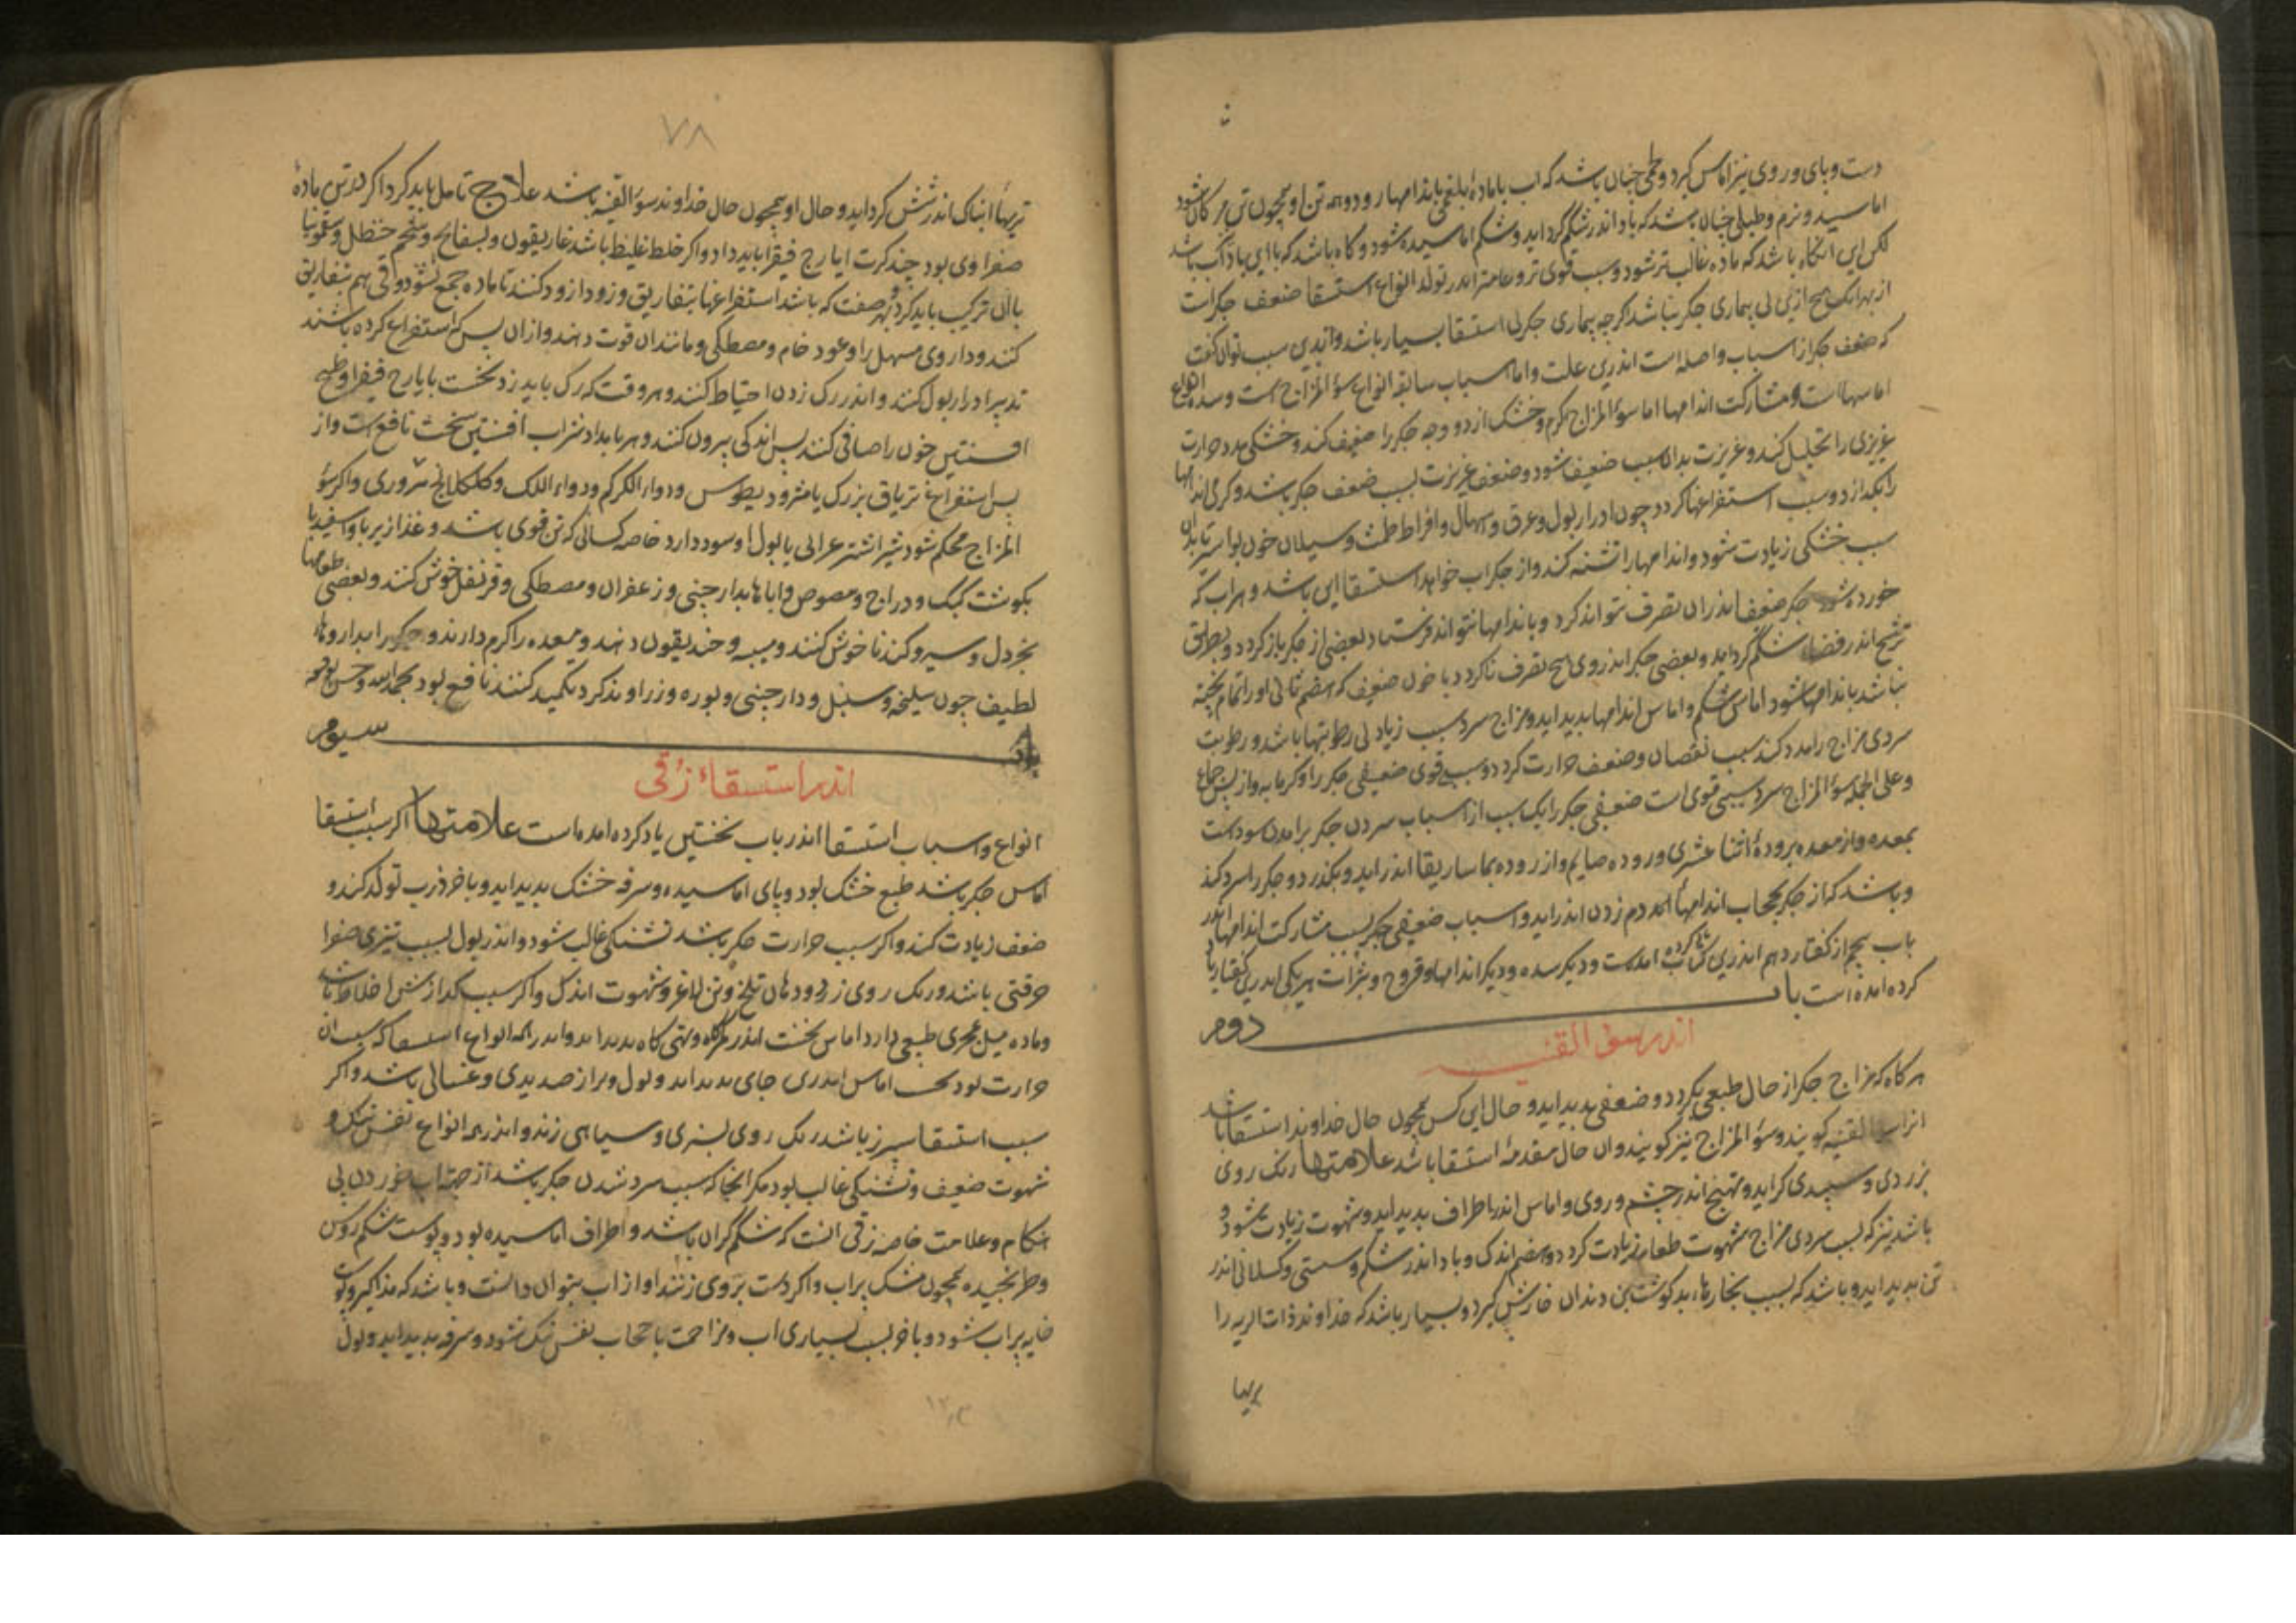 دست و پای و روی نیز اماس کیرد و لحمی جنان باشد که اب با مادهٔ بلغمی باندامها رود و همه تن او همجون تن مردکان شود
اماسیده و نرم و طبلی جنان باشد که باد اندر شکم کرد اید و شکم اماسیده شود و کاه باشد که با این باد اب باشد
لکن این انکاه باشد که ماده غالب تر شود و سبب قوی تر و عامتر اندر تولد انواع استسقا ضعف جکرست
از بهر انک هیج ازین بی بیماری جکر نباشد اکرجه بیماری جکر بی استسقا بسیار باشد و ازین سبب توان کفت
که ضعف جکر از اسباب واصله است اندرین علت و اما اسباب سابقه انواع سؤ المزاج است و سده و انواع
اماسها است و مشارکت اندامها اما سؤ المزاج کرم و خشک از دو وجه جکر را ضعیف کند و خشکی مدد حرارت
غریزی را تحلیل کند و غریزت بدان سبب ضعیف شود و ضعف غریزت سبب ضعف جکر باشد و کرمی اندامها
را بکدازد و سبب استفراغها کردد جون ادرار بول و عرق و اسهال و افراط طمث و سیلان خون بواسیر تا بدان
سبب خشکی زیادت شود و اندامها را تشنه کند و از جکر اب خواهد استسقا این باشد و هر اب که
خورده شود جکر ضعیف اندران تصرف نتواند کرد و باندامها نتواند فرستاد بعضی از جکر باز کردد و بطریق
ترشح اندر فضاء شکم کرد اید و بعضی جکر اندر وی هیج تصرف ناکرده با خون ضعیف که هضم ثانی او را تمام نبخته
باشد باندامها شود اماس شکم و اماس اندامها بدید اید و مزاج سرد سبب زیادتی رطوبتها باشد و رطوبت
سردی مزاج را مدد کند سبب نقصان و ضعف حرارت کردد و سببی قوی ضعیفی جکر را و کرمابه و از پس جماع
و علی الجمله سؤ المزاج سرد سببی قوی است ضعیفی جکر را یک سبب از اسباب سردی جکر برامدن سوداست
بمعده و از معده برودهٔ اثنا عشری و روده صایم و از روده بماساریقا اندر اید و بکذرد و جکر را سرد کند
و باشد که از جکر بحجاب اندامهاء دم زدن اندر اید و اسباب ضعیفی جکر بسبب مشارکت اندامها اندر
باب بنجم از کفتار دهم اندرین کتاب یاد کرده امدست و دیکر سده و دیکر اندامها و قروح و بثرات هر یکی اندرین کفتار یاد
کرده امده است باب دوم
اندر سؤ القنیه
هرکاه که مزاج جکر از حال طبعی بکردد و ضعیفی بدید اید و حال این کس همجون حال خداوند استسقا باشد
انرا سؤ القنیه کویند و سؤ المزاج نیز کویند و ان حال مقدمهٔ استسقا باشد علامتها رنک روی
بزردی و سپیدی کراید و تهیج اندر جشم و روی و اماس اندر اطراف بدید اید و شهوت زیادت شود و
باشد نیز که بسبب سردی مزاج شهوت طعام زیادت کردد و هضم اندک و باد اندر شکم و سستی و کسلانی اندر
تن بدید اید و باشد که بسبب بخارهاء بد کوشت بن دندان خارش کیرد و بسیار باشد که خداوند ذات الریه را
بریها
۷۸
تریهاء انباک اندر شش کرد اید و حال او همجون حال خداوند سؤ القنیه باشد علاج تامل باید کرد اکر در تن مادهٔ
صفراوی بود جند کرت ایارج فیقرا باید داد و اکر خلط غلیظ باشد غاریقون و بسفایج و شحم حنظل و سقمونیا
با ان ترکیب باید کرد بهر صفت که باشد استفراغها بتفاریق و زودازود کنند تا ماده جمع نشود و قی هم بتفاریق
کند و داروی مسهل را و عود خام و مصطکی و مانند ان قوت دهند و از ان پس که استفراغ کرده باشند
تدبیر ادرار بول کنند و اندر رک زدن احتیاط کنند و هر وقت که رک باید زد نخست با یارج فیقرا و طبیخ
افسنتین خون را صافی کنند پس اندکی بیرون کنند و هر بامداد شراب افسنتین سخت نافع است و از
پس استفراغ تریاق بزرک یا مثرودیطوس و دواء الکرکم و دواء اللک و کلکلانج بزوری و اکر سؤ
المزاج محکم شود شیر اشتر عرابی با بول او سود دارد خاصه کسانی که تن قوی باشد و غذا زیربا و اسفیدبا
بکوشت کبک و دراج و مصوص و اباها بدارجینی و زعفران و مصطکی و قرنفل خوش کنند و بعضی طعامها
بخردل و سیر و کندنا خوش کنند و میبه و خندیقون دهند و معده را کرم دارند و جکر را بداروهاء
لطیف جون سلیخه و سنبل و دارجینی و بوره و زراوند کرد تکمید کنند نافع بود بحمد الله و حسن توفیقه
باب سیوم
اندر استسقاء زقی
انواع و اسباب استسقا اندر باب نخستین یاد کرده امده است علامتها اکر سبب استسقا
اماس جکر باشد طبع خشک بود و پای اماسیده و سرفه خشک بدید اید و باخر ذرب تولد کند و
ضعف زیادت کند و اکر سبب حرارت جکر باشد تشنکی غالب شود و اندر بول بسبب تیزی صفرا
حرقتی باشد و رنک روی زرد و دهان تلخ و تن لاغر و شهوت اندک و اکر سبب کدازش اخلاط باشد
و ماده میل بمجری طبعی دارد اماس نخست اندر کمرکاه و تهی کاه بدید اید و اندر همه انواع استسقا که سبب ان
حرارت بود نخست اماس اندرین جای بدید اید و بول و براز صدیدی و غسالی باشد و اکر
سبب استسقا سپرز باشد رنک روی بسبزی و سیاهی زند و اندر همه انواع نفس تنک و
شهوت ضعیف و تشنکی غالب بود مکر انجا که سبب سرد شدن جکر باشد از جهت اب خوردن بی
هنکام و علامت خاصه زقی انست که شکم کران باشد و اطراف اماسیده بود و پوست شکم روشن
و طرنجیده همجون مشک پر اب و اکر دست بروی زنند اواز اب بتوان دانست و باشد که مذاکیر و پوست
خایه پر اب شود و باخر بسبب بسیاری اب و مزاحمت با حجاب نفس تنک شود و سرفه بدید اید و بول